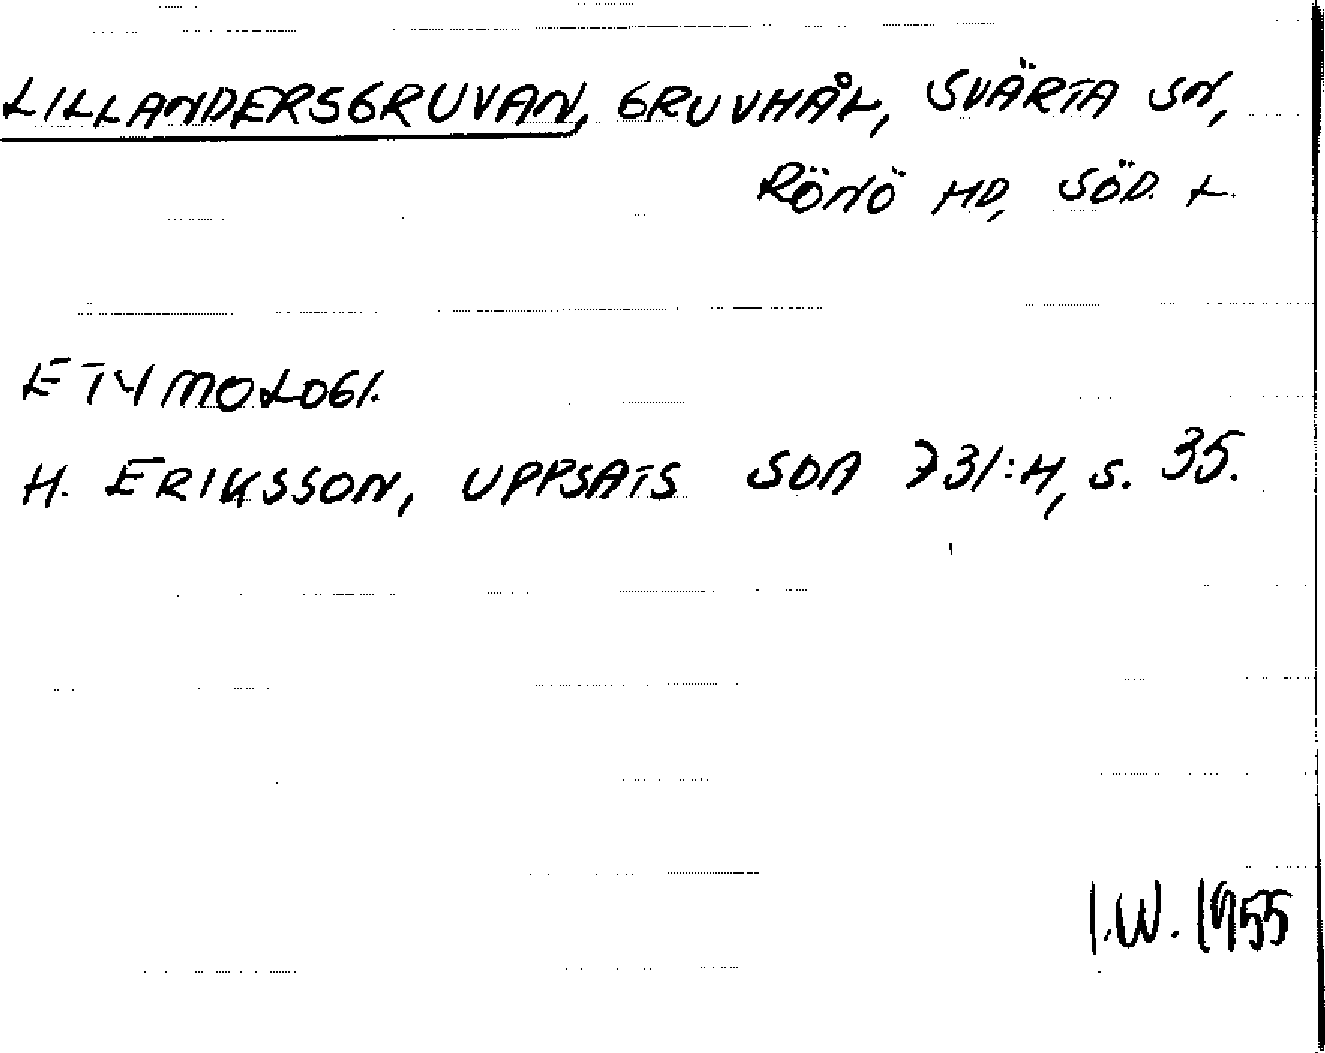 LILLANDERSGRUVAN, GRUVHÅL, SVÄRTA SN,
RÖNÖ HD, SÖD. L.
ETYMOLOGI.
H. ERIKSSON, UPPSATS SOA 731:H, S. 35.
I.W. 1955